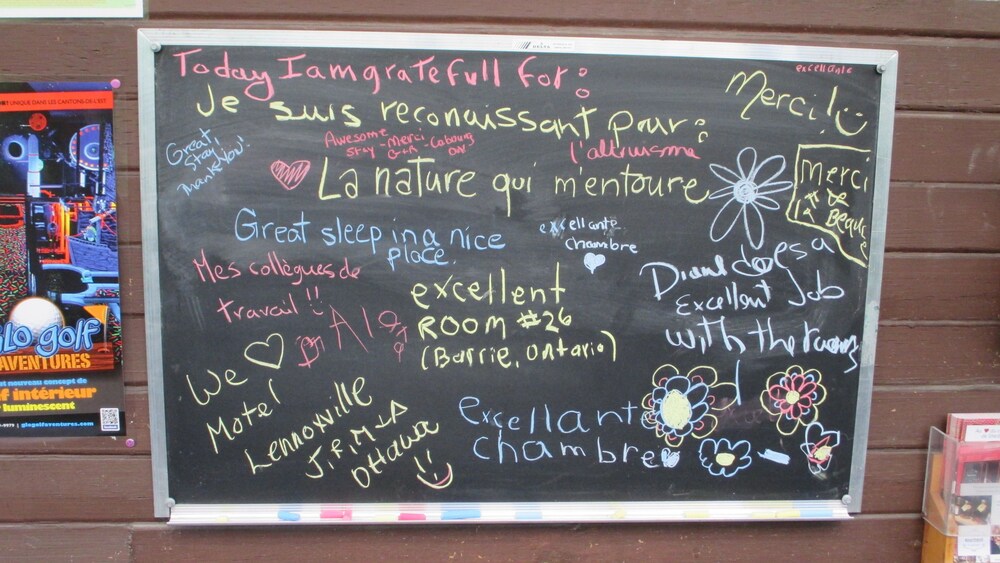 Today I am gratefull for:
excellante
Merci!
Je suis reconaussant pour:
Great
stay!
Thank you!
Awesome - Merci - Cobourg
stay
ON
l'altruisme
La nature qui m'entoure
Merci
la Beauce
Great sleep in a nice
place.
excellante
chambre
Mes collègues de
travail!!
excellent
ROOM #26
(Barrie, Ontario)
Diane does a
Excellant Job
with the rooms
We
Motel
Lennoxville
J, F, M-A
Ottawa
excellante
chambre
UNIQUE DANS LES CANTONS-DE-L'EST
glo golf
AVENTURES
nouveau concept de
f intérieur
luminescent
www.glogolfaventures.com